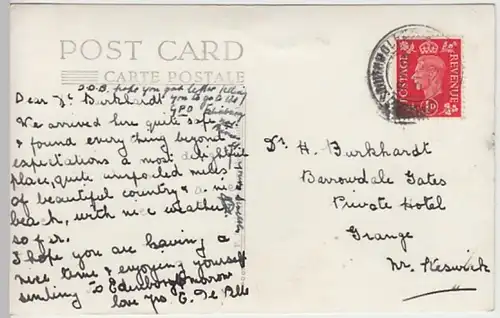 POST CARD
CARTE POSTALE
D.O.B. hope you got letter telling
you to go to the
GPO
Dear Dr Burkhardt
We arrived here quite safe
& found everything beyond
expectations a most delightful
place, quite unspoiled miles
of beautiful country & a nice
beach, with nice weather
so far.
I hope you are having a
nice time & enjoying yourself
sending to Edenborg tomorrow
love yrs E. De
POSTAGE
REVENUE
Dr H. Burkhardt
Borrowdale Gates
Private Hotel
Grange
Nr. Keswick